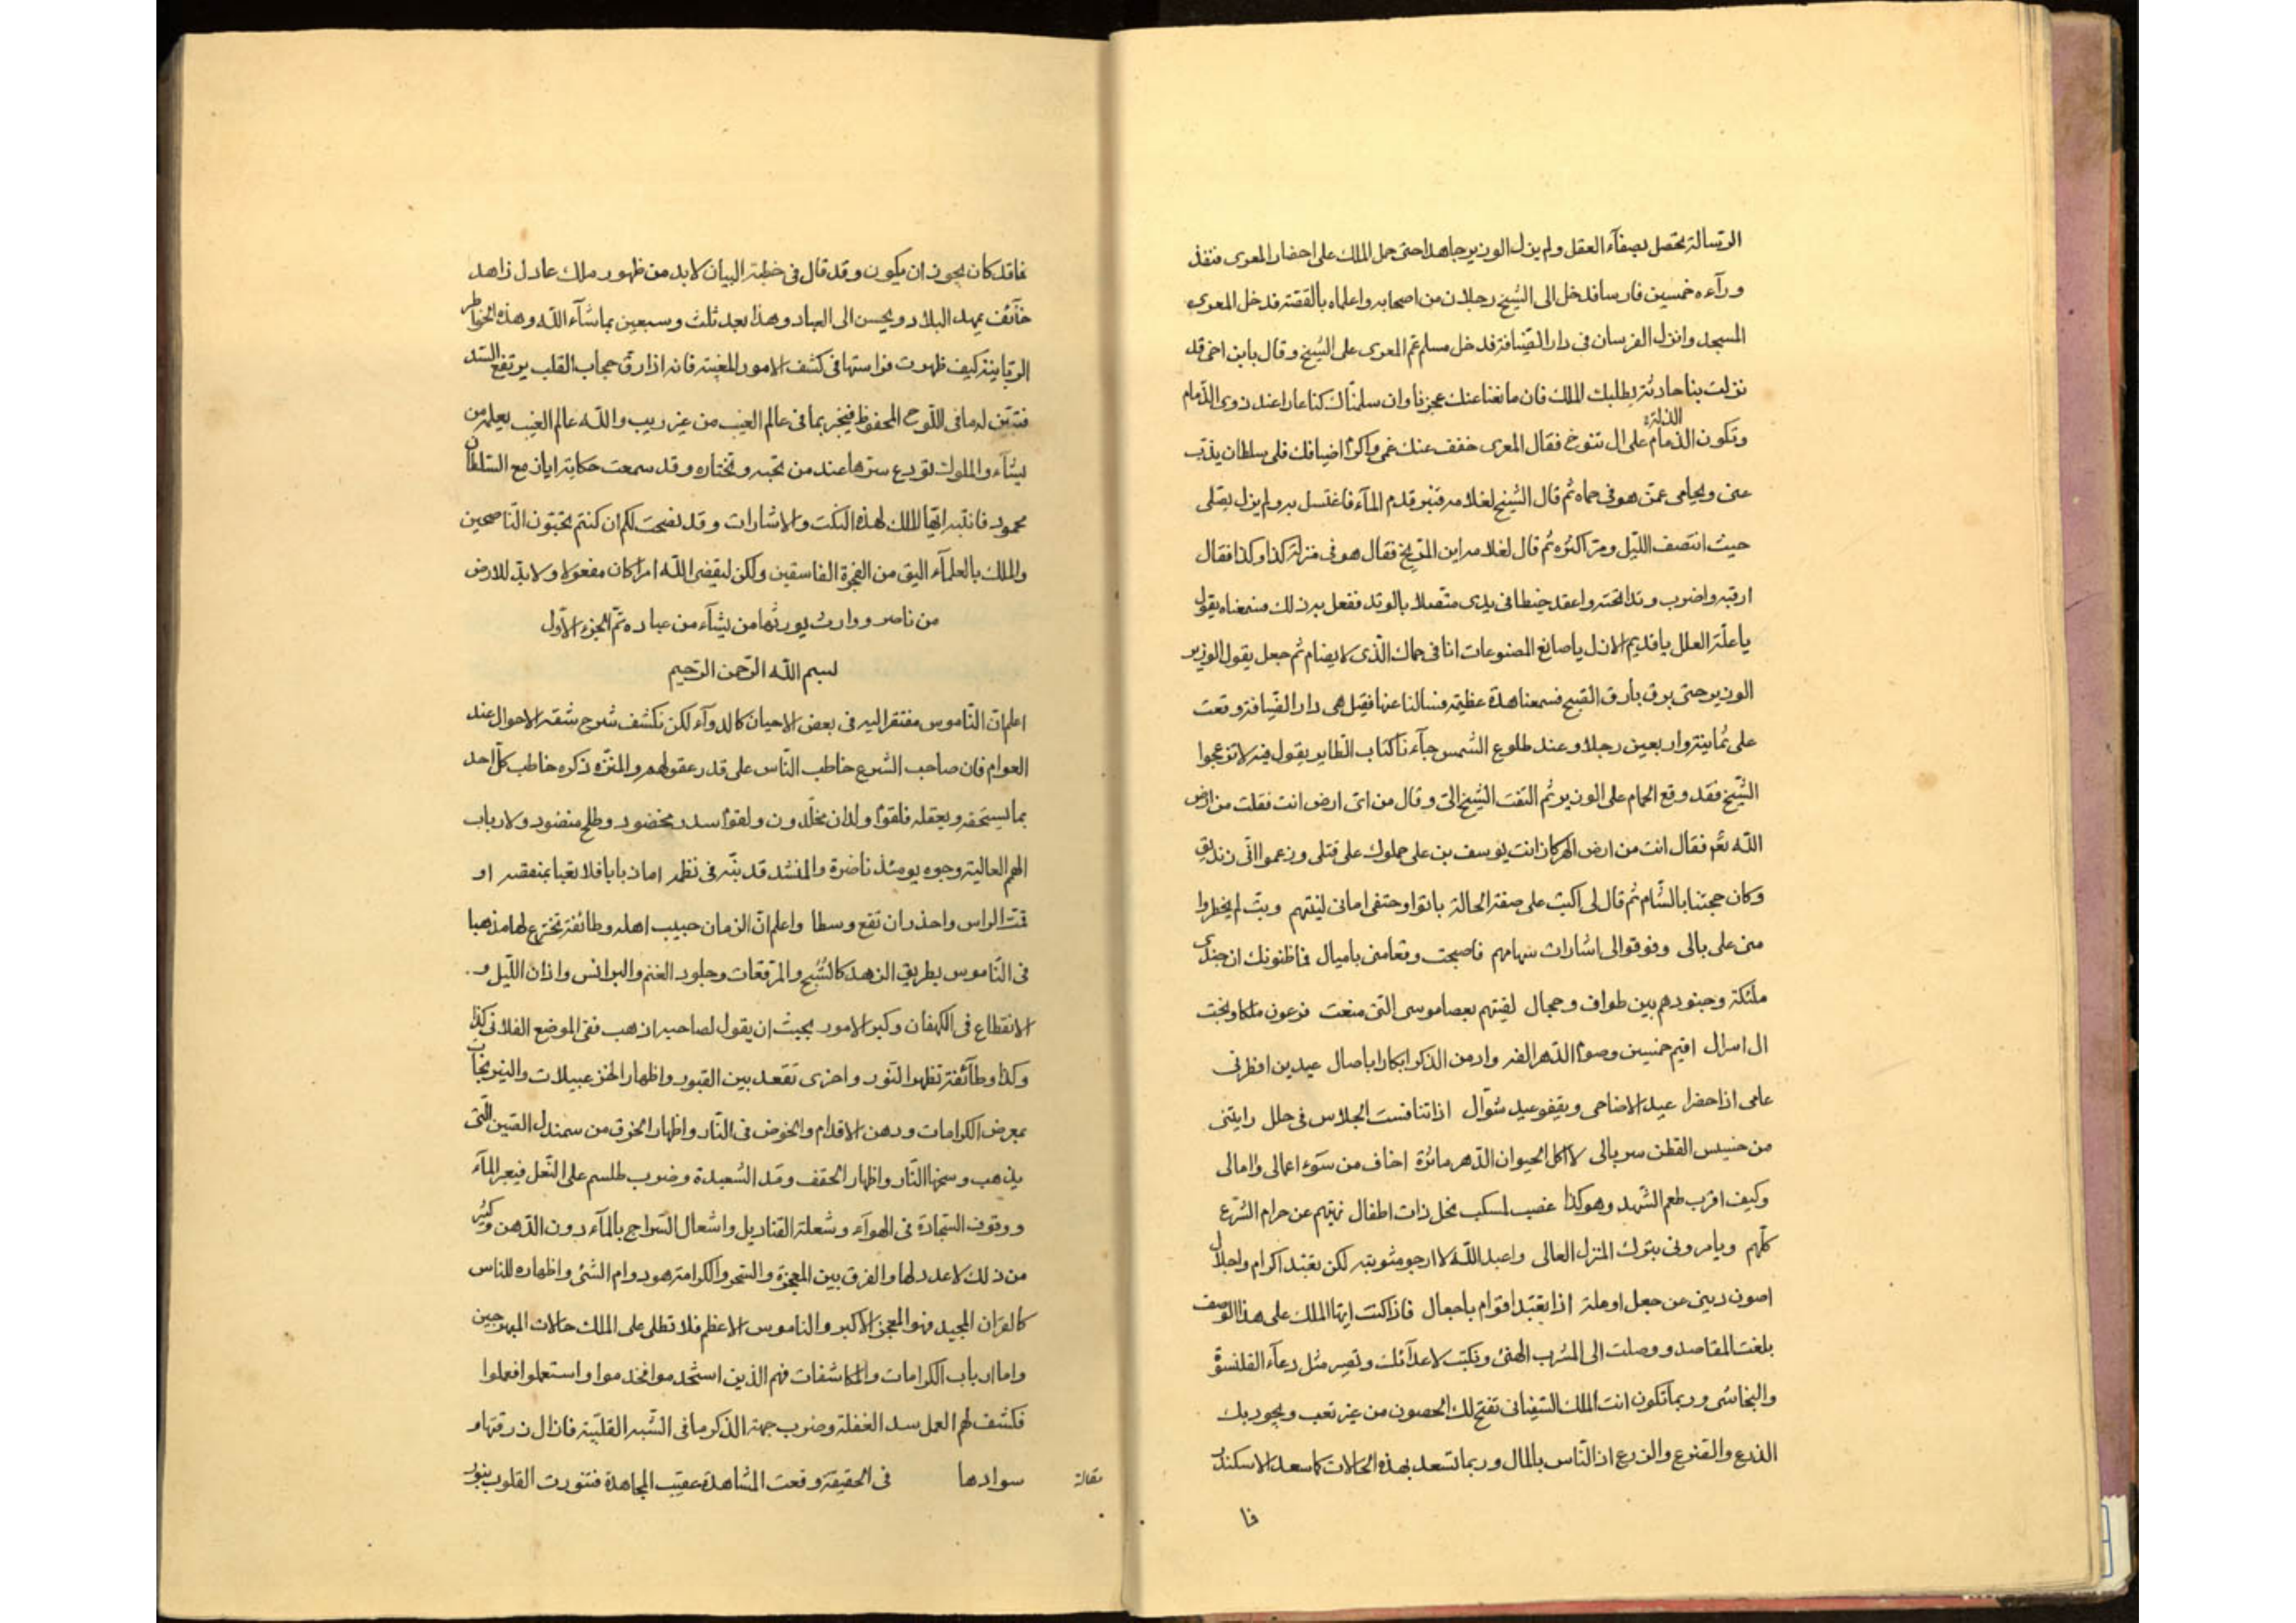 الرسالة يحصل بصفآء العقل ولم يزل الوزير جاهدا حتى حمل الملك على احضار المعرى فنفذ
ورآءه خمسين فارسا فدخل الى الشيخ رجلان من اصحابه واعلماه بالقصة فدخل المعرى
المسجد وانزل الفرسان فى دار الضيافة فدخل مسلم عم المعرى على الشيخ وقال يابن اخى قد
نزلت بنا حادثة يطلبك الملك فان مانعنا عنك عجزنا وان سلمناك كنا عارا عند ذوى الذمام
وتكون الذمام الذلة على ال تنوخ فقال المعرى خفف عنك غمى واكرم اضيافك فلى سلطان يذب
عنى ويحامى عمن هو فى حماه ثم قال الشيخ لغلامه قنبر قدم المآء فاغتسل به ولم يزل يصلى
حيث انتصف الليل ومر اكثره ثم قال لغلامه اين المريخ فقال هو فى منزلة كذا وكذا فقال
ارقبه واضرب وتدا تحته واعقد خيطا فى يدى متصلا بالوتد ففعل به ذلك فسمعناه يقول
يا علة العلل يا قديم الازل يا صانع المصنوعات انا فى حماك الذى لا يضام ثم جعل يقول الوزير
الوزير حتى برق بارق الصبح فسمعنا هدة عظيمة فسالنا عنها فقيل هى دار الضيافة وقعت
على ثمانية واربعين رجلا وعند طلوع الشمس جآءنا كتاب الطاير يقول فيه لا تزعجوا
الشيخ فقد وقع الحمام على الوزير ثم التفت الشيخ الى وقال من اى ارض انت فقلت من ارض
الله فقال انت من ارض الهركان انت يوسف بن على حملوك على قتلى وزعموا انى زنديق
وكان حجتنا بالشام ثم قال لى اكتب على صفة الحالة باتوا وحتفى امانى لنيتهم وبت لم يخطروا
منى على بالى وفوقوا الى اشارات سهامهم فاصبحت وقعا منى باميال فما ظنونك ان جندى
ملئكة وجنودهم بين طواف وحجال لقيتهم بعصا موسى التى منعت فرعون ملكا ونجت
ال اسرال اقيم خمسين وصوم الدهر الفه وادمن الذكر ابكارا باصال عيدين افطر فى
عامى اذا حضرا عيد الاضاحى ويقفو عيد شوال اذا تنافست الجلاس فى حلل رايتنى
من خسيس القطن سربالى لا اكل الحيوان الدهر ماثرة اخاف من سوء اعمالى وامالى
وكيف اقرب طعم الشهد وهو كذا غصب لمكسب نحل ذات اطفال نهيتهم عن حرام الشرع
كلهم ويامرونى بترك المنزل العالى واعبد الله لا ارجو مثوبته لكن تعبد اكرام واجلال
اصون دينى عن جعل اوملة اذا تعبد اقوام باجعال فاذا كنت ايها الملك على هذا الوصف
بلغت المقاصد ووصلت الى المشرب الهنى ونكبت لاعدآئك وتصير مثل دعآء القلنسوة
والنجاشى وربما تكون انت الملك السفيانى تفتح لك الحصون من غير تعب ويجود بك
الذرع والقنوع والزرع اذ الناس بالمال وربما تسعد بهذه الحالات كما سعد الاسكندر
فا
فاقد كان يجوز ان يكون وقد قال فى خطبة البيان لا بد من ظهور ملك عادل زاهد
خآئف يمهد البلاد ويحسن الى العباد وهذا بعد ثلث وسبعين بما شآء الله وهذه الخواطر
الربانية كيف ظهرت فراستها فى كشف الامور المغيبة فانه اذا رق حجاب القلب يرتفع السد
فتبين له ما فى اللوح المحفوظ فيخبر بما فى عالم الغيب من غير ريب والله عالم الغيب يعلمه من
يشآء والملوك تودع سرها عند من تحبه وتختاره وقد سمعت حكاية اياز مع السلطان
محمود فانتبه ايها الملك لهذه النكت والاشارات وقد نصحت لكم ان كنتم تحبون الناصحين
والملك بالعلمآء اليق من الفجرة الفاسقين ولكن ليقضى الله امرا كان مفعولا ولا بد للارض
من ناصر ووارث يورثها من يشآء من عباده تم الجزء الاول
بسم الله الرحمن الرحيم
اعلم ان الناموس مفتقر اليه فى بعض الاحيان كالدوآء لكن نكشف شرح شقه الاحوال عند
العوام فان صاحب الشرع خاطب الناس على قدر عقولهم والمنزه ذكره خاطب كل احد
بما يستحقه ويعقله فلقوم ولدان مخلدون ولقوم سدر مخضود وطلح منضود ولارباب
الهم العالية وجوه يومئذ ناضرة والمنشد قد بينه فى نظمه اما ذبابا فلا تعبا بمنقصه او
قمة الراس واحذر ان تقع وسطا واعلم ان الزمان حبيب اهله وطائفة تخترع لها مذهبا
فى الناموس بطريق الزهد كالسبح والمرقعات وجلود الغنم والبرانس واذان الليل و
الانقطاع فى الكهفان وكبر الامور بحيث ان يقول لصاحبه اذهب ففى الموضع الفلانى كذا
وكذا وطآئفة تظهر النور واخرى تقعد بين القبور واظهار الخزعبيلات والنيرنجات
بمعرض الكرامات ودهن الاقدام والخوض فى النار واظهار الخرق من سمندل الصين التى
يذهب وسخها النار واظهار الحقف ومد الشعبدة وضرب طلسم على النعل فيعبر المآء
ووقوف السجادة فى الهوآء وشعلة القناديل واشعال السراج بالمآء دون الدهن وكثير
من ذلك لا عدد لها والفرق بين المعجزة والسحر والكرامة هو دوام الشئ واظهاره للناس
كالقران المجيد فهو المعجز الاكبر والناموس الاعظم فلا تطلى على الملك حالات المبهرجين
واما ارباب الكرامات والمكاشفات فهم الذين استخدموا فخدموا واستعملوا فعملوا
فكشف لهم العمل سد الغفلة وضرب جهة الذكر ما فى الشبه القلبية فازال زرقتها و
سوادها فى الحقيقة وقعت المشاهدة عقيب المجاهدة فتنورت القلوب بنور
مقالة